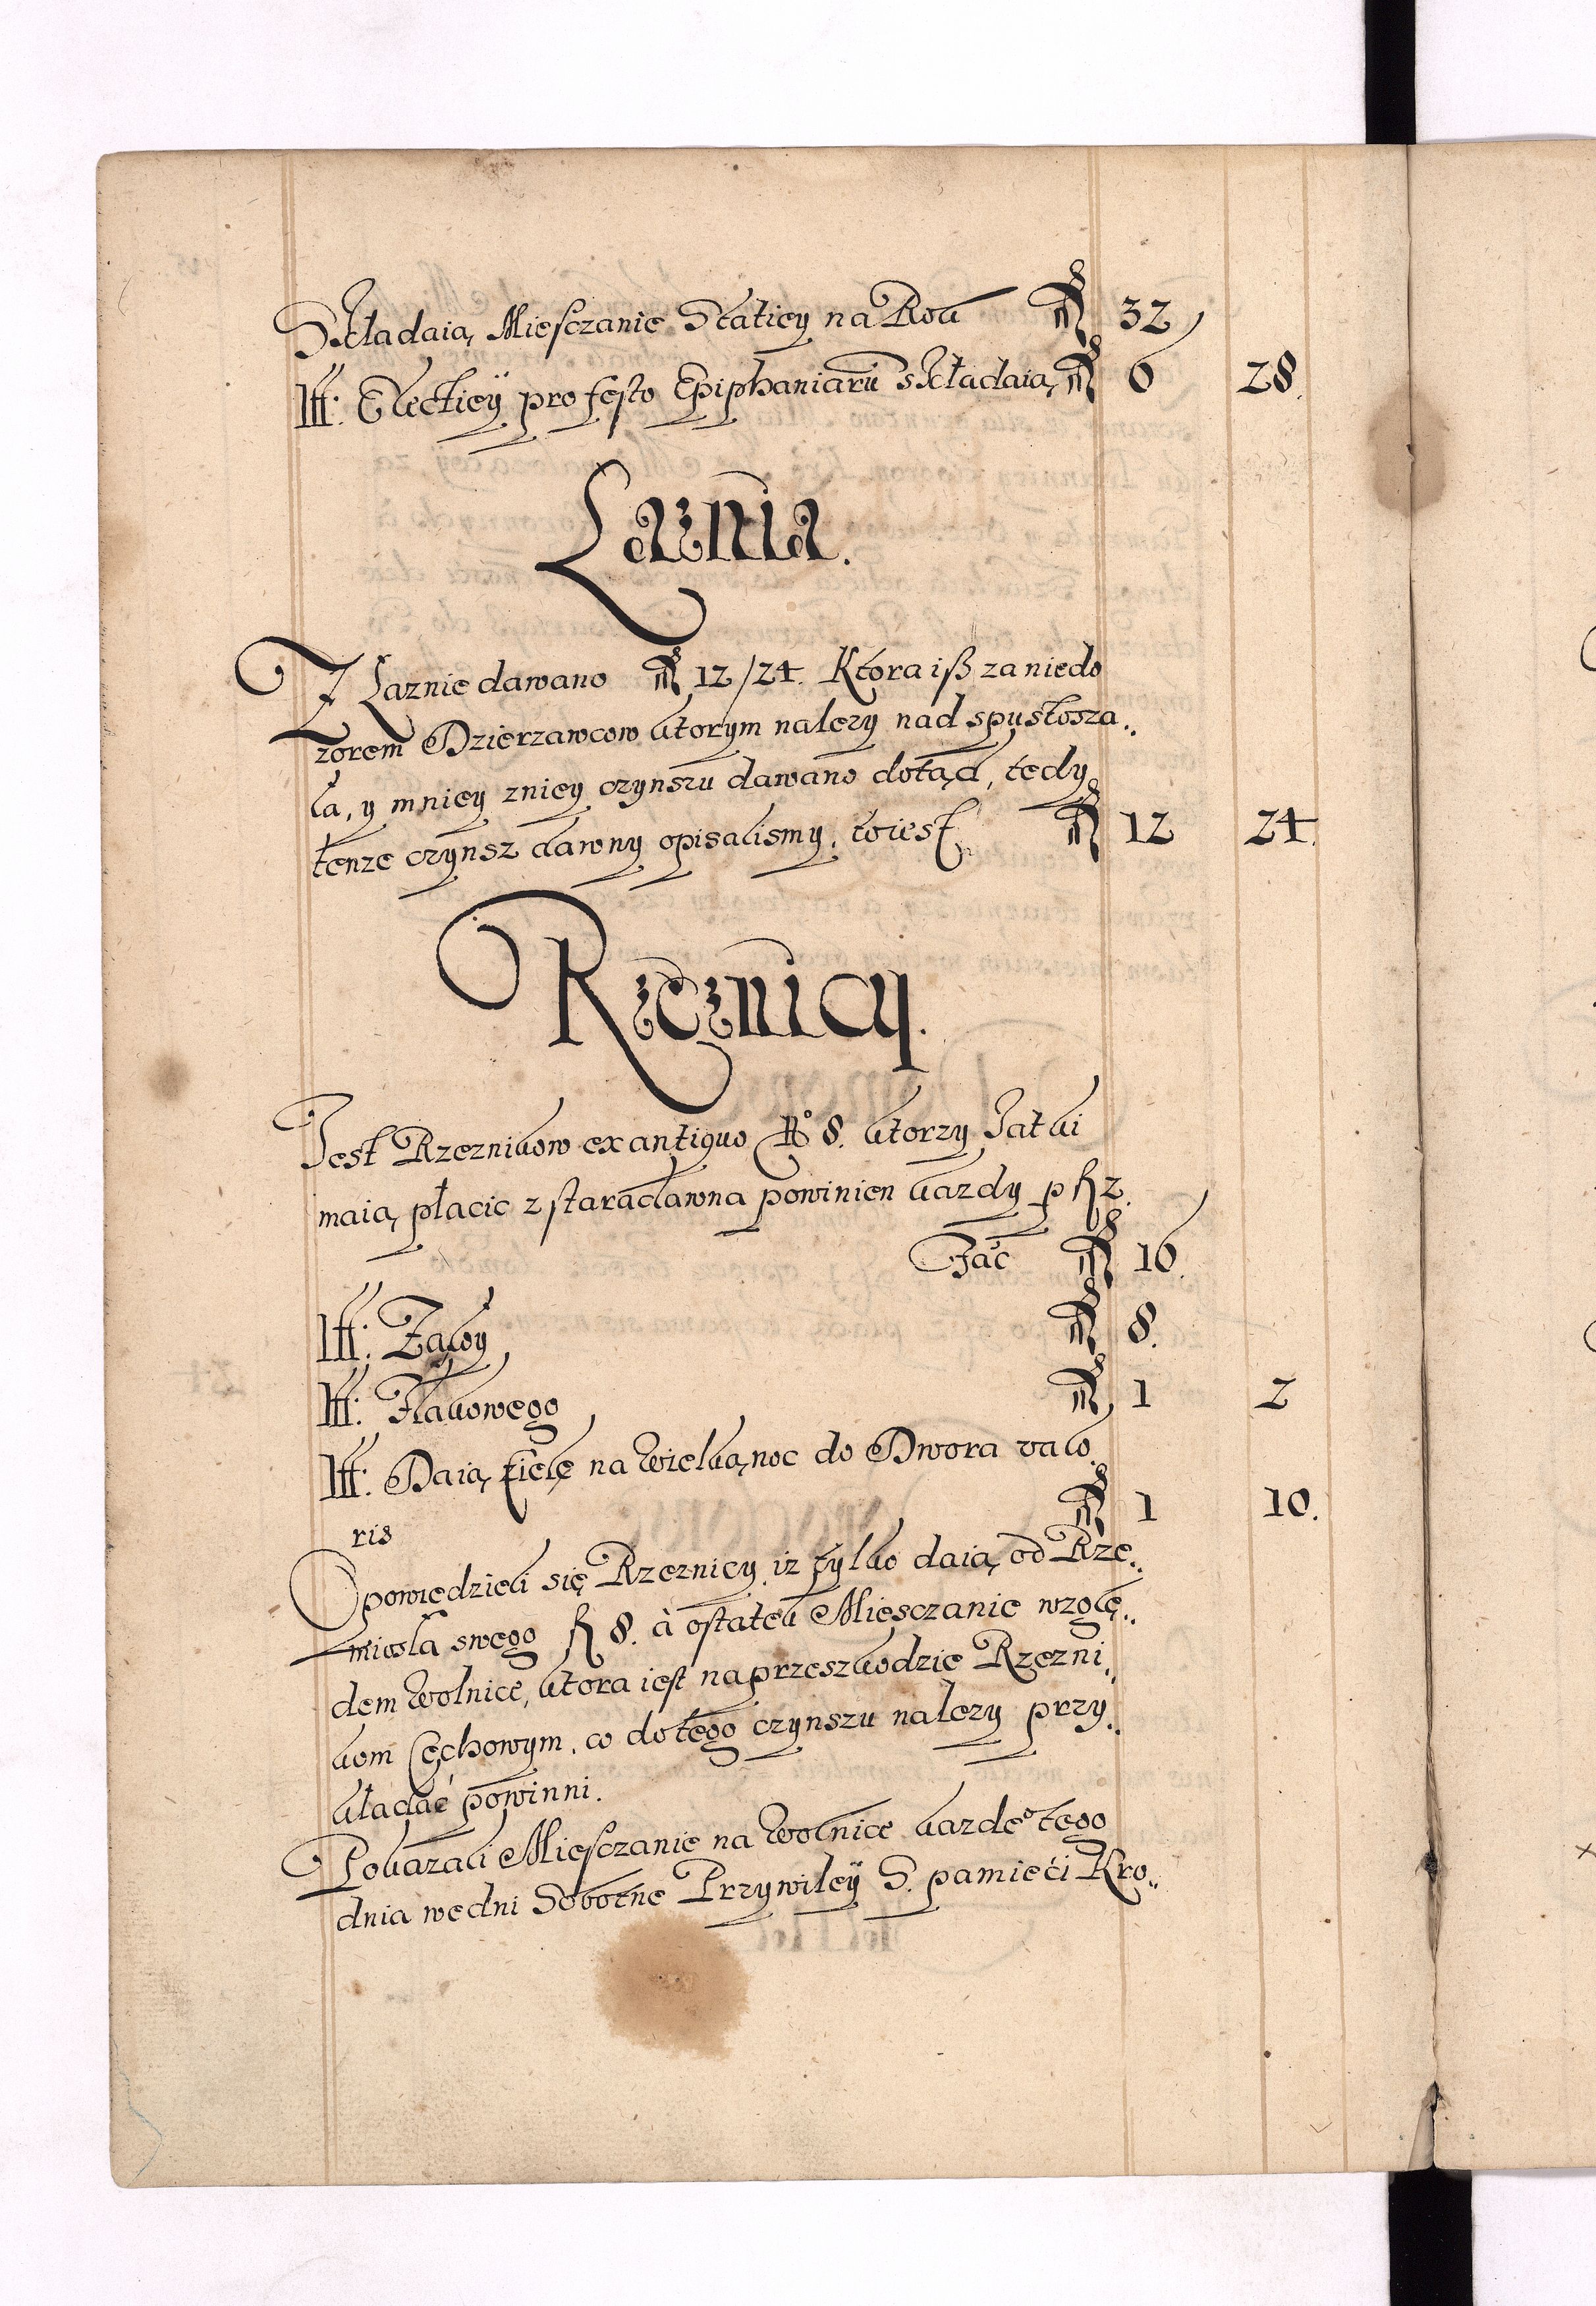 Składaią Miesczanie Staciey na Rok fl 32
Itt: Electiey pro festo Epiphaniarũ składaią fl 6 28.
Łaznia.
Z Łaznie dawano fl 12/24. Ktora iß za niedo
zorem Dzierzawcow ktorym nalezy nad spustosza..
ła, y mniey zniey czynszu dawano dotąd, tedy
tenze czynsz dawny opisalismy, to iest fl 12 24.
Rzeznicy.
Iest Rzeznikow ex antiquo No 8. ktorzy Iatki
maią, płacic z staradawna powinien kazdy p fl 2.
Fac fl 16.
Itt: fl 8.
Itt: Flakowego fl 1 2
Itt: Daią Cielę na Wielkąnoc do Dwora valo
ris fl 1 10.
Opowiedzieli się Rzeznicy iz tylko daią od Rze..
miosła swego fl 8. à ostatek Miesczanie wzglę..
dem Wolnice, ktora iest na przeszkodzie Rzezni..
kom Cechowym, co do tego czynszu nalezy przy..
kładać powinni.
Pokazali Miesczanie na Wolnice kazdeo tego
dnia we dni Sobotne Przywiley S. pamieci Kro..